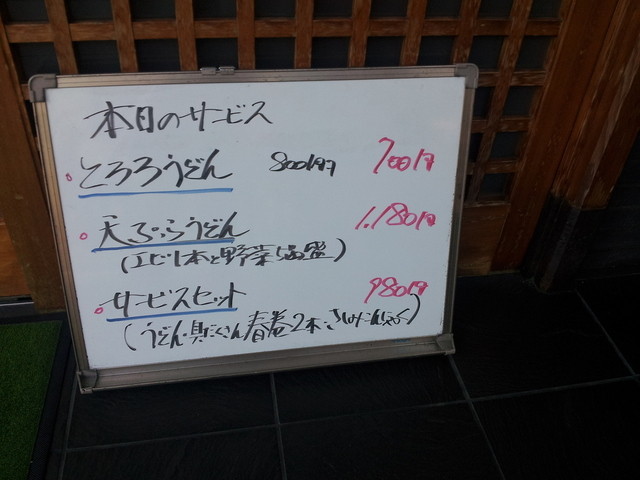 本日のサービス
とろろうどん 800円 700円
天ぷらうどん 1,180円
(エビ1本と野菜5品盛)
サービスセット 980円
(うどん・具だくさん春巻2本・